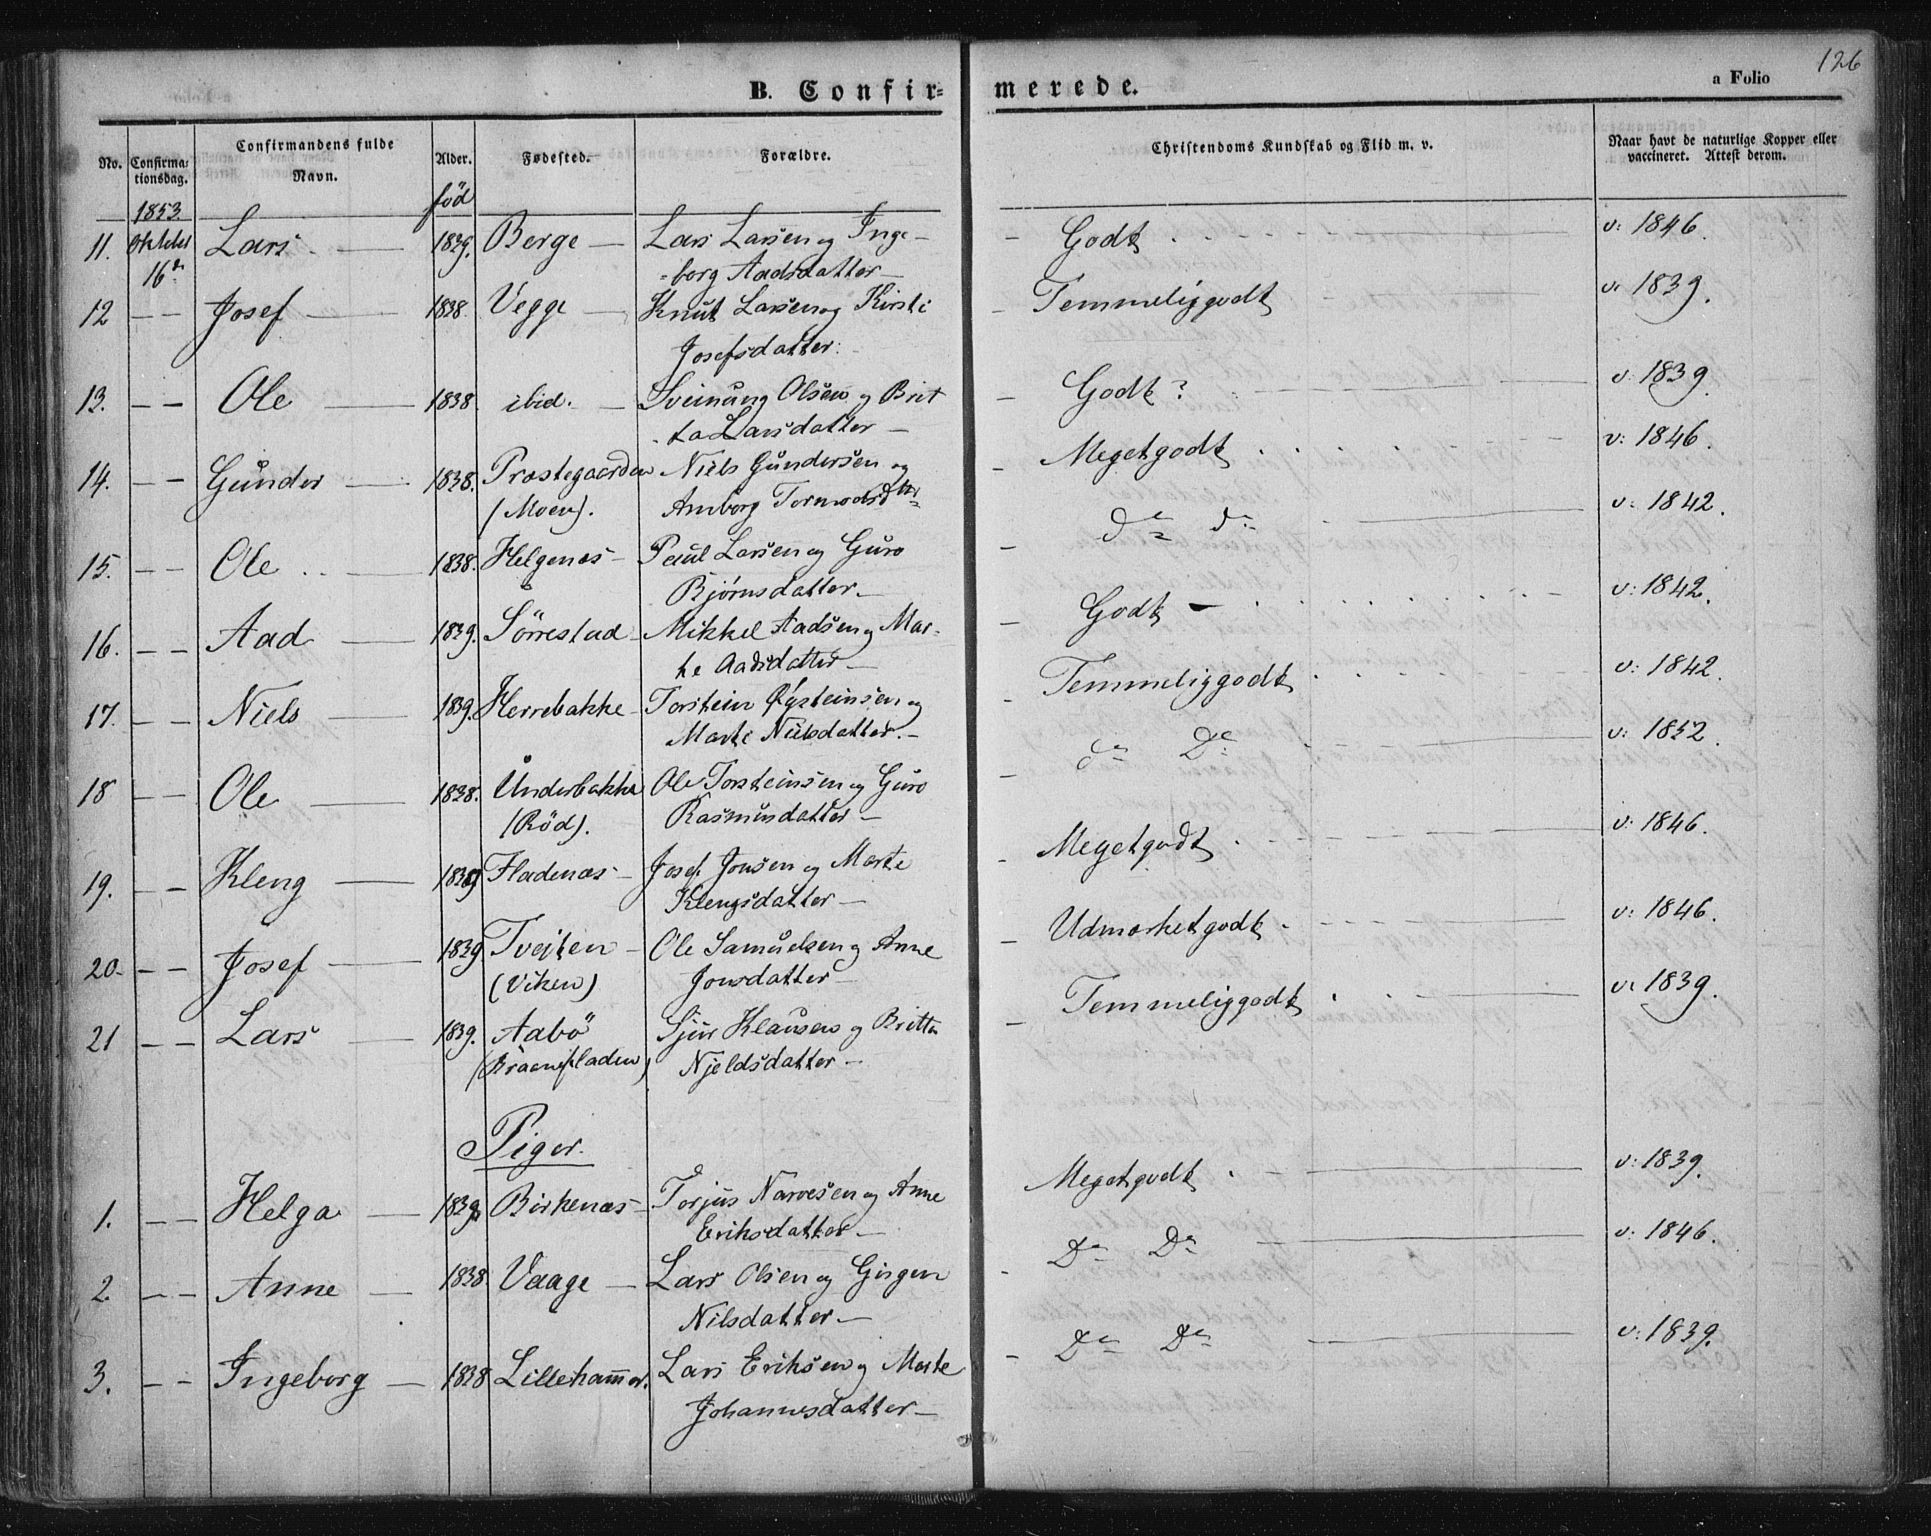 126
B. Confir-
merede.
a Folio
No.
Confirma-
tionsdag.
Confirmandens fulde
Navn.
Alder.
Fødested.
Forældre.
Christendoms Kundskab og Flid m. v.
Naar havt de naturlige Kopper eller
vaccineret. Attest derom.
1853.
föd
11. Oktober Lars 1839. Berge Lars Larsen og Inge- Godt v: 1846.
16de borg Aadsdatter
12 Josef 1838. Vegge Knut Larsen og Kirsti Temmeliggodt v: 1839.
Josefsdatter.
13. Ole 1838. ibid. Sveinung Olsen og Brit Godt? v: 1839.
ta Larsdatter
14. Gunder 1838. Præstegaarden Niels Gundersen og Megetgodt v: 1846.
(Moen). Amborg Tormodsdtr
15. Ole 1838. Helgenæs Paul Larsen og Guro do do v: 1842.
Bjørnsdatter
16. Aad 1839. Sörrestad Mikkel Aadsen og Mar- Godt v: 1842.
te Aadsdatter
17. Niels 1839. Herrebakke Torstein Øysteinsen og Temmeliggodt v: 1842.
Marte Nielsdatter.
18 Ole 1838. Underbakke Ole Torsteinsen og Guro do Do v: 1852.
(Röd). Rasmusdatter
19. Kleng 1839 Fladenæs Josef Jonsen og Marte Megetgodt v: 1846.
Klengsdatter
20. Josef 1839 Tvejten Ole Samuelsen og Anne Udmærketgodt v: 1846.
(Viken) Jonsdatter
21 Lars 1839. Aabö Sjur Klausen og Britta Temmeliggodt v: 1839.
Njeldsdatter
Piger.
1. Helga 1839. Birkenæs Torjus Narvesen og Anne Megetgodt v: 1839.
Eriksdatter
2. Anne 1838 Vaage Lars Olsen og Girgen Do Do v: 1846.
Nilsdatter
3. Ingeborg 1838 Lillehammer. Lars Eriksen og Marte Do Do v: 1839.
Johannesdatter